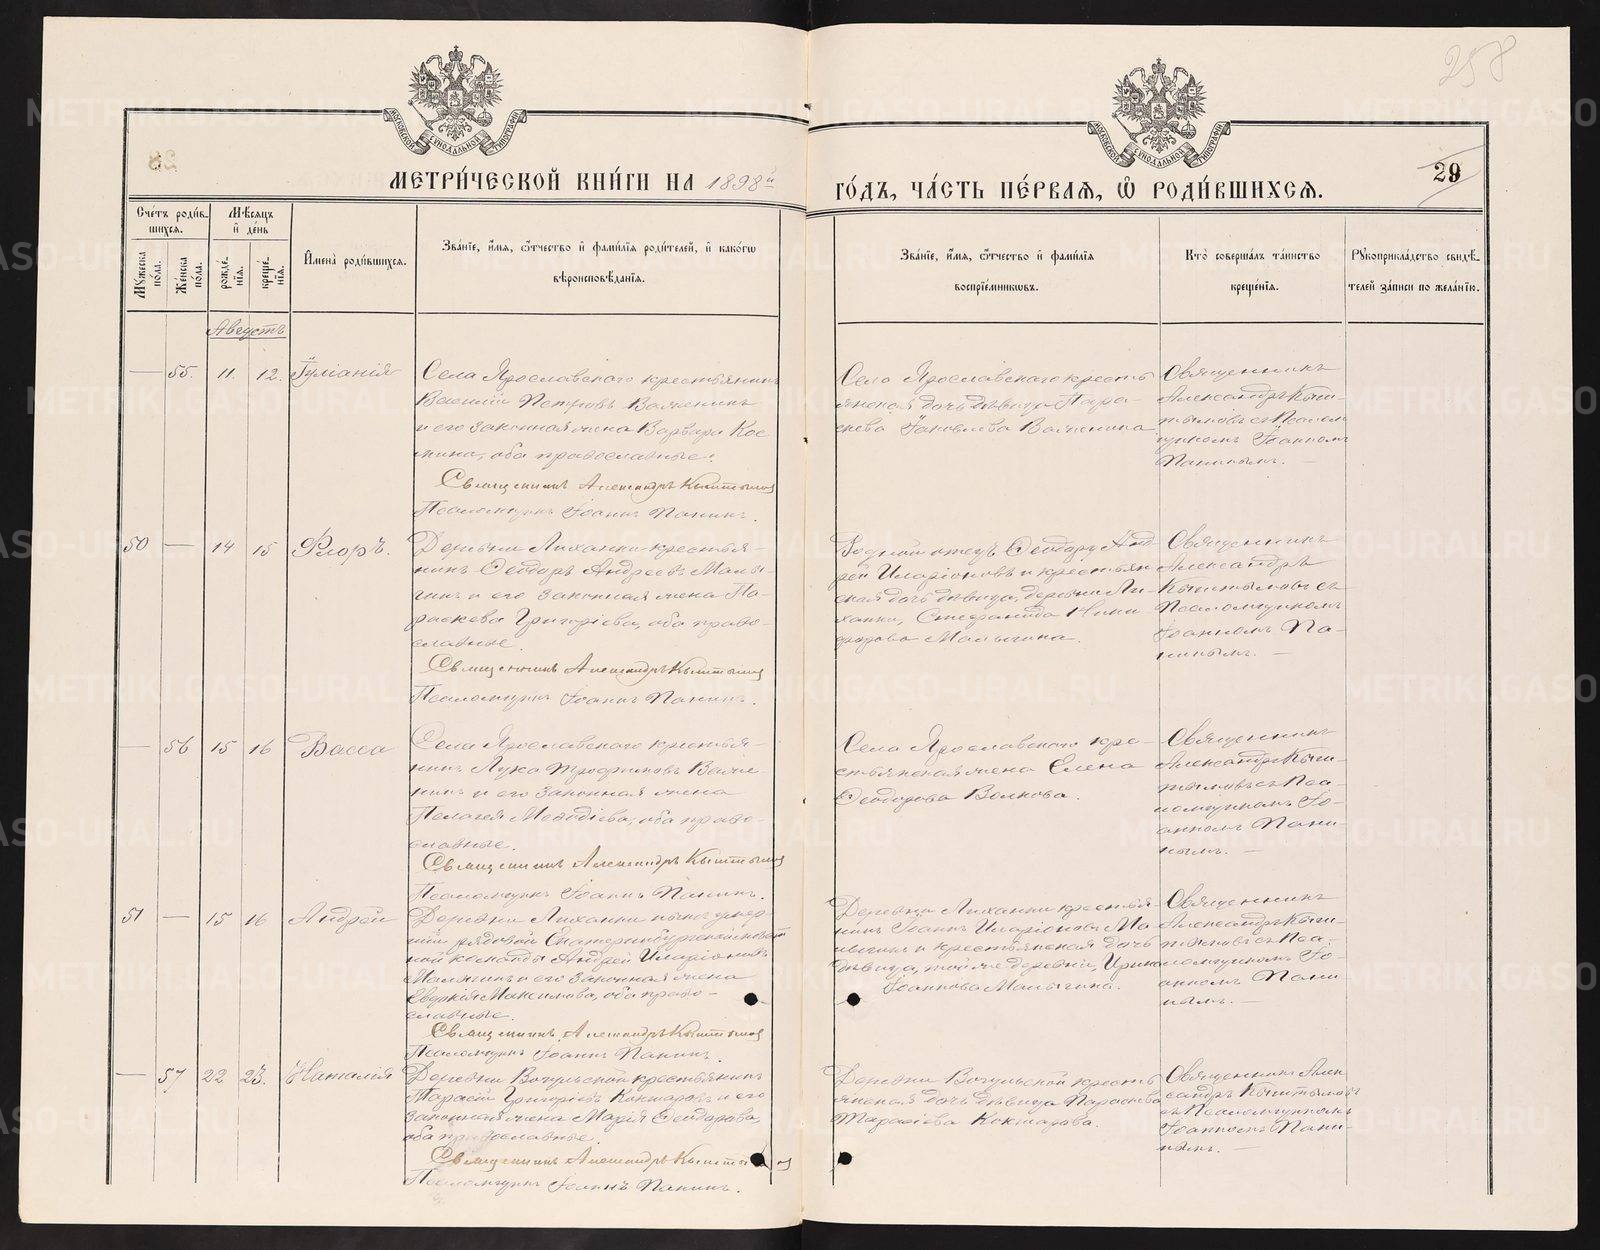 258
29
МЕТРИ́ЧЕСКОЙ КНИ́ГИ НА 1898й ГО́ДЪ, ЧА́СТЬ ПЕ́РВАѦ, Ѡ РОДИ́ВШИХСѦ.
Сче́тъ роди́вшихсѧ.
Мꙋ́жеска по́ла.
Же́нска по́ла.
Мѣ́сѧцъ и҆ де́нь
рожде́нїѧ.
креще́нїѧ.
И҆мена̀ роди́вшихсѧ.
Зва́нїе, и҆́мѧ, ѻ҆́тчество и҆ фами́лїѧ роди́телей, и҆ како́гѡ
вѣроисповѣ́данїѧ.
Зва́нїе, и҆́мѧ, ѻ҆́тчество и҆ фами́лїѧ
воспрїе́мникѡвъ.
Кто̀ соверша́лъ та́инство
креще́нїѧ.
Рꙋкоприкла́дство свидѣ́-
телей за́писи по жела́нїю.
Августъ
— 55. 11. 12. Іуліанія
Села Ярославского крестьянинъ
Василій Петровъ Вяткинъ
и его законная жена Варвара Кос
мина, оба православные.
Священникъ Александръ Кыштымов
Псаломщикъ Іоаннъ Панинъ.
Села Ярославского кресть
янская дочь девица Пара-
скева Іаковлева
Священникъ
Александръ Кыш-
тымовъ съ Псалом
щикомъ Іоанномъ
Панинымъ. —
50 — 14 15 Флоръ.
Деревни Лиханки крестья-
нинъ Ѳеодоръ Андреевъ Малы-
гинъ и его законная жена Па-
раскева Григоріева, оба право-
славные.
Священникъ Александръ Кыштымов
Псаломщикъ Іоаннъ Панинъ.
Родной отецъ Ѳеодора Анд-
рей Иларіоновъ и крестьян
ская дочь девица, деревни Ли-
ханки, Стефанида Ники
форова Малыгина.
Священникъ
Александръ
Кыштымовъ съ
Псаломщикомъ
Іоанномъ Па-
нинымъ. —
— 56 15 16 Васса
Села Ярославского крестья-
нинъ Лука Трофимовъ
и его законная жена
Пелагея Меѳодіева, оба право-
славные.
Священникъ Александръ Кыштымов
Псаломщикъ Іоаннъ Панинъ.
Села Ярославского кре-
стьянская жена Елена
Ѳеодорова Волкова.
Священникъ
Александръ Кыш-
тымовъ съ Пса-
ломщикомъ Іо-
анномъ Пани-
нымъ. —
51 — 15 16 Андрей
Деревни Лиханки
рядовой Екатеринбургской
команды Андрей Иларіоновъ
Малыгинъ и его законная жена
Евдокія Максимова, оба право-
славные.
Священникъ Александръ Кыштымов
Псаломщикъ Іоаннъ Панинъ.
Деревни Лиханки крестья-
нинъ Іоаннъ Иларіоновъ Ма
лыгинъ и крестьянская дочь
девица, той же деревни, Ирина
Іоаннова Малыгина.
Священникъ
Александръ Кыш-
тымовъ съ Пса-
ломщикомъ Іо-
анномъ Пани
нымъ. —
— 57 22 23. Наталія
Деревни Вогульской крестьянинъ
Тарасій Григоріевъ Кокшаровъ и его
законная жена Марія Ѳеодорова,
оба православные.
Священникъ Александръ Кыштымов
Псаломщикъ Іоаннъ Панинъ.
Деревни Вогульской кресть
янская дочь девица Параскева
Тарасіева Кокшарова.
Священникъ Алек
сандръ Кыштымовъ
съ Псаломщикомъ
Іоанномъ Пани-
нымъ. —